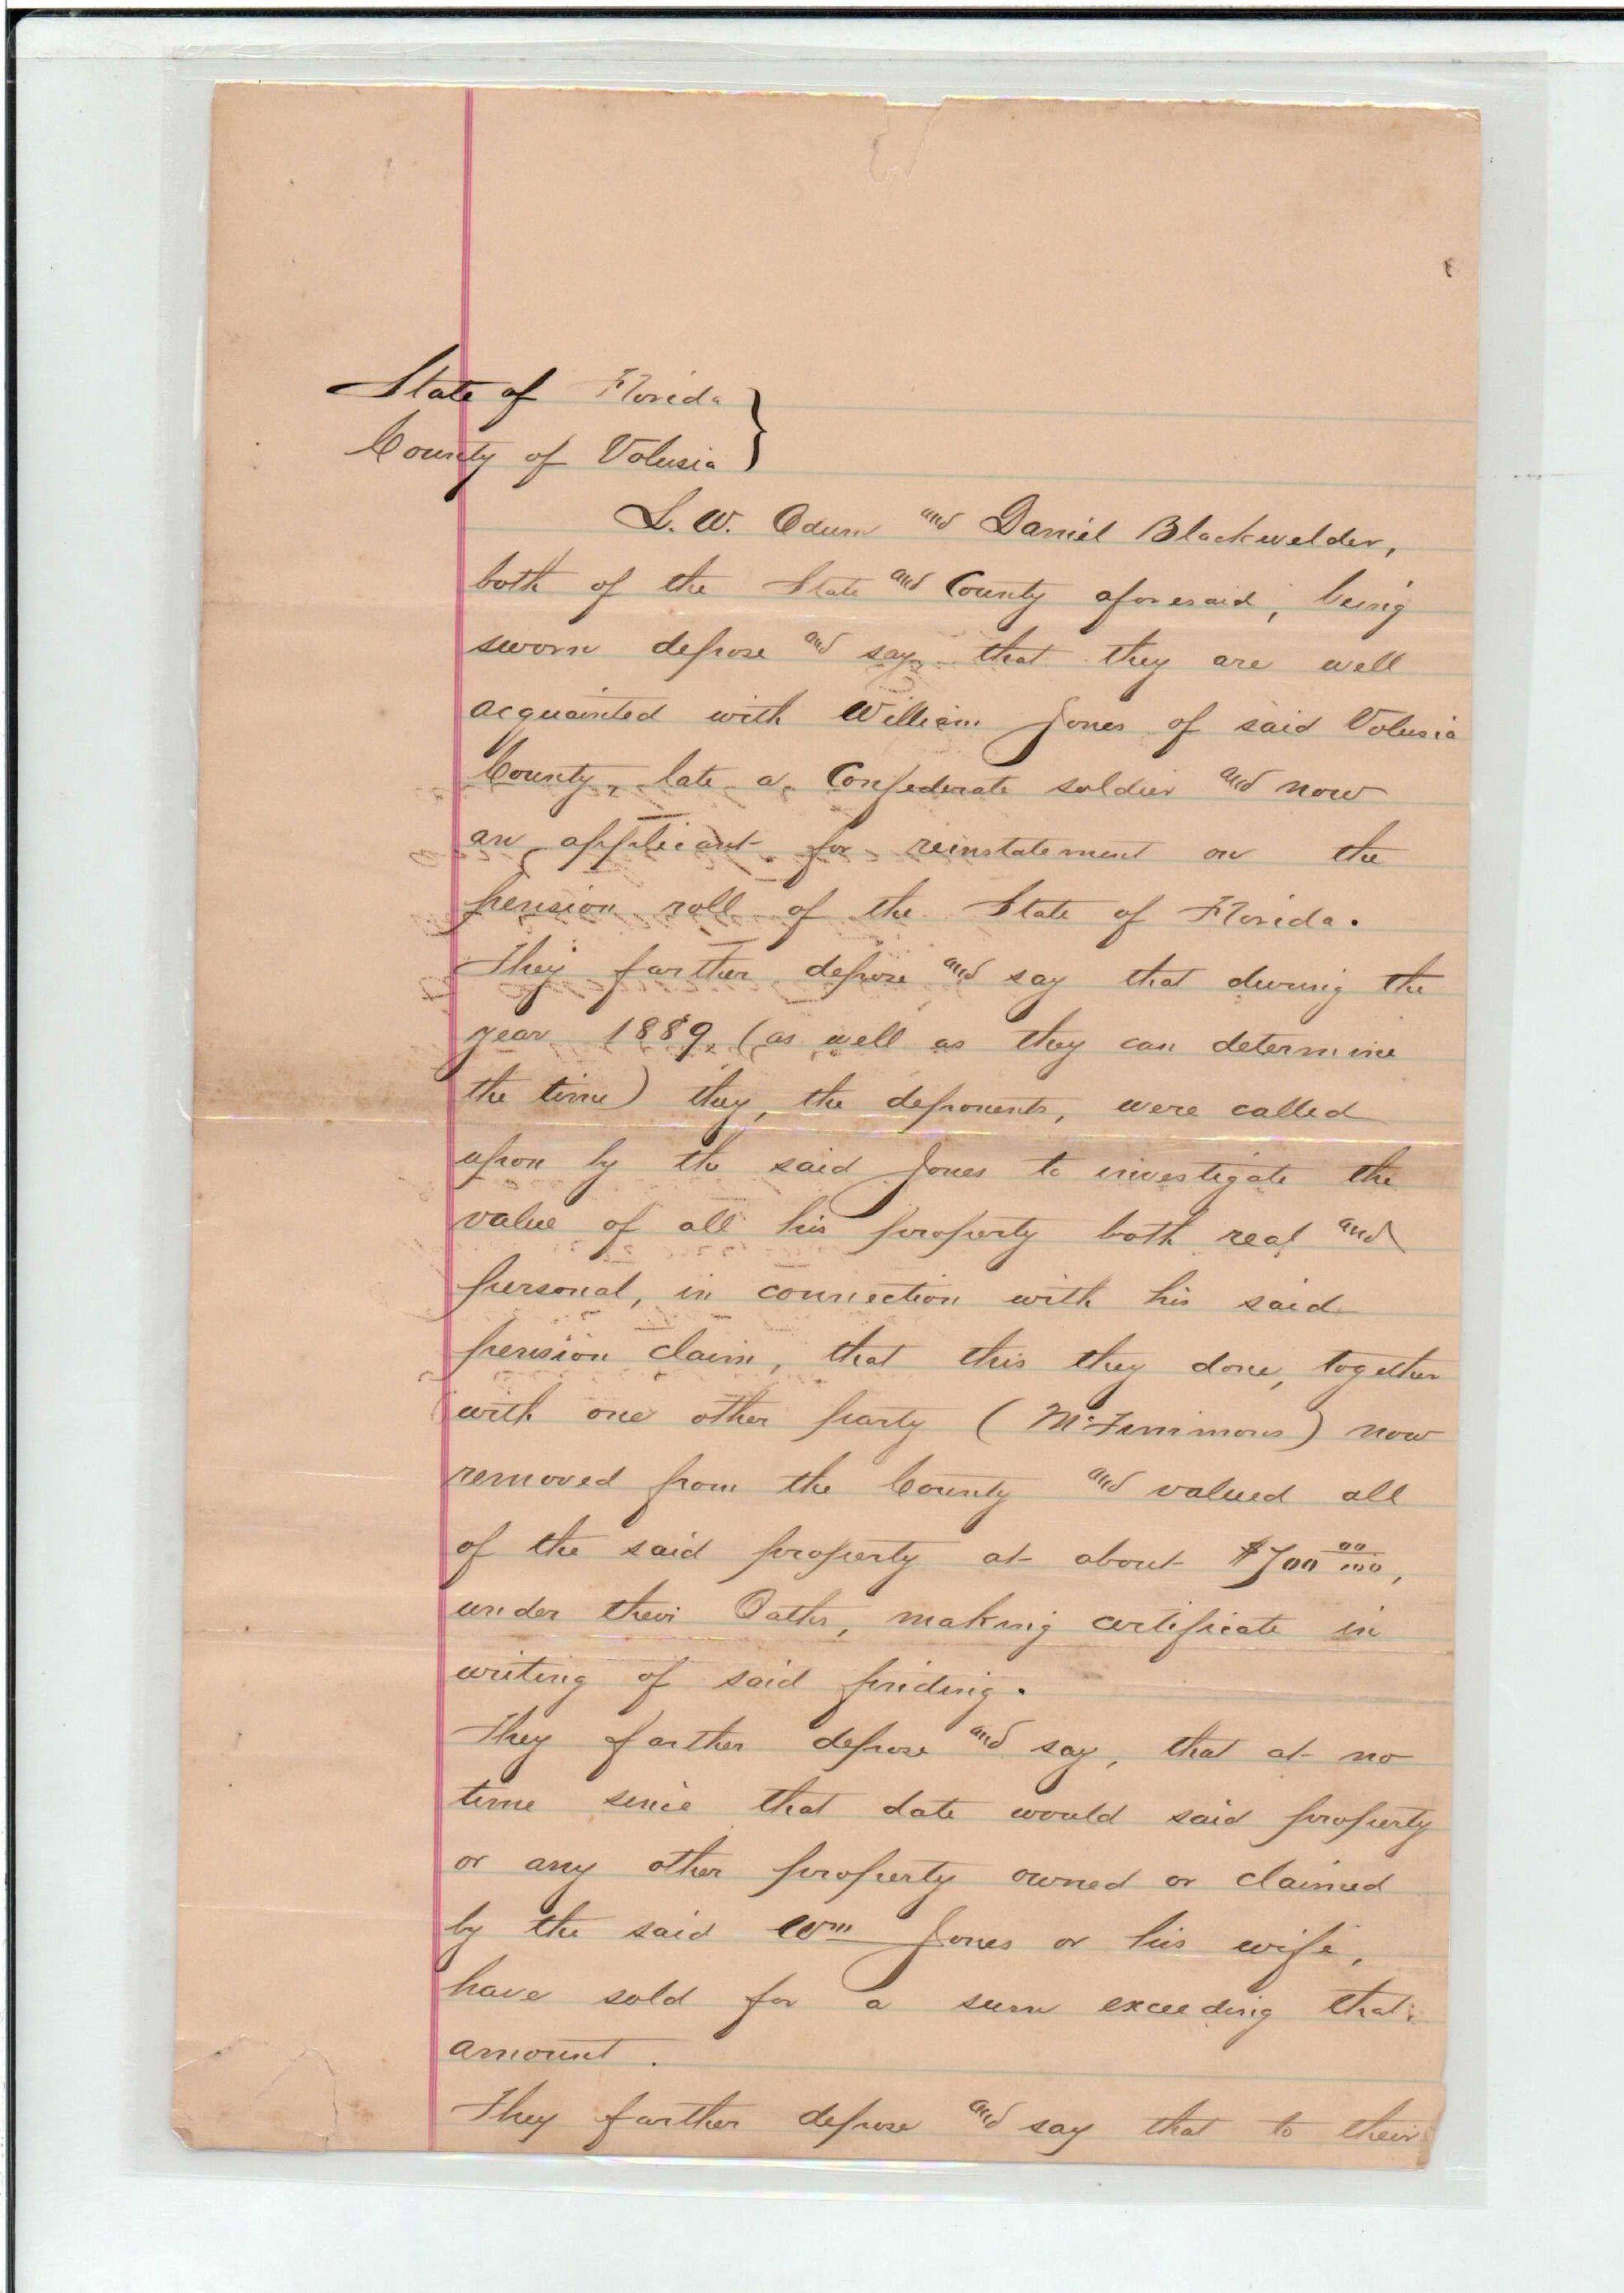 State of Florida }
County of Volusia }
L. W. Odum and Daniel Blackwelder,
both of the State and County aforesaid, being
sworn depose and say that they are well
acquainted with William Jones of said Volusia
County, late a Confederate soldier and now
an applicant for reinstatement on the
pension roll of the State of Florida.
They farther depose and say that during the
year 1889, (as well as they can determine
the time) they, the deponents, were called
upon by the said Jones to investigate the
value of all his property both real and
personal, in connection with his said
pension claim, that this they done, together
with one other party ( ) now
removed from the County and valued all
of the said property at about $700 00/100,
under their Oaths, making certificate in
writing of said finding.
They farther depose and say, that at no
time since that date would said property
or any other property owned or claimed
by the said Wm Jones or his wife,
have sold for a sum exceeding that
amount.
They farther depose and say that to their